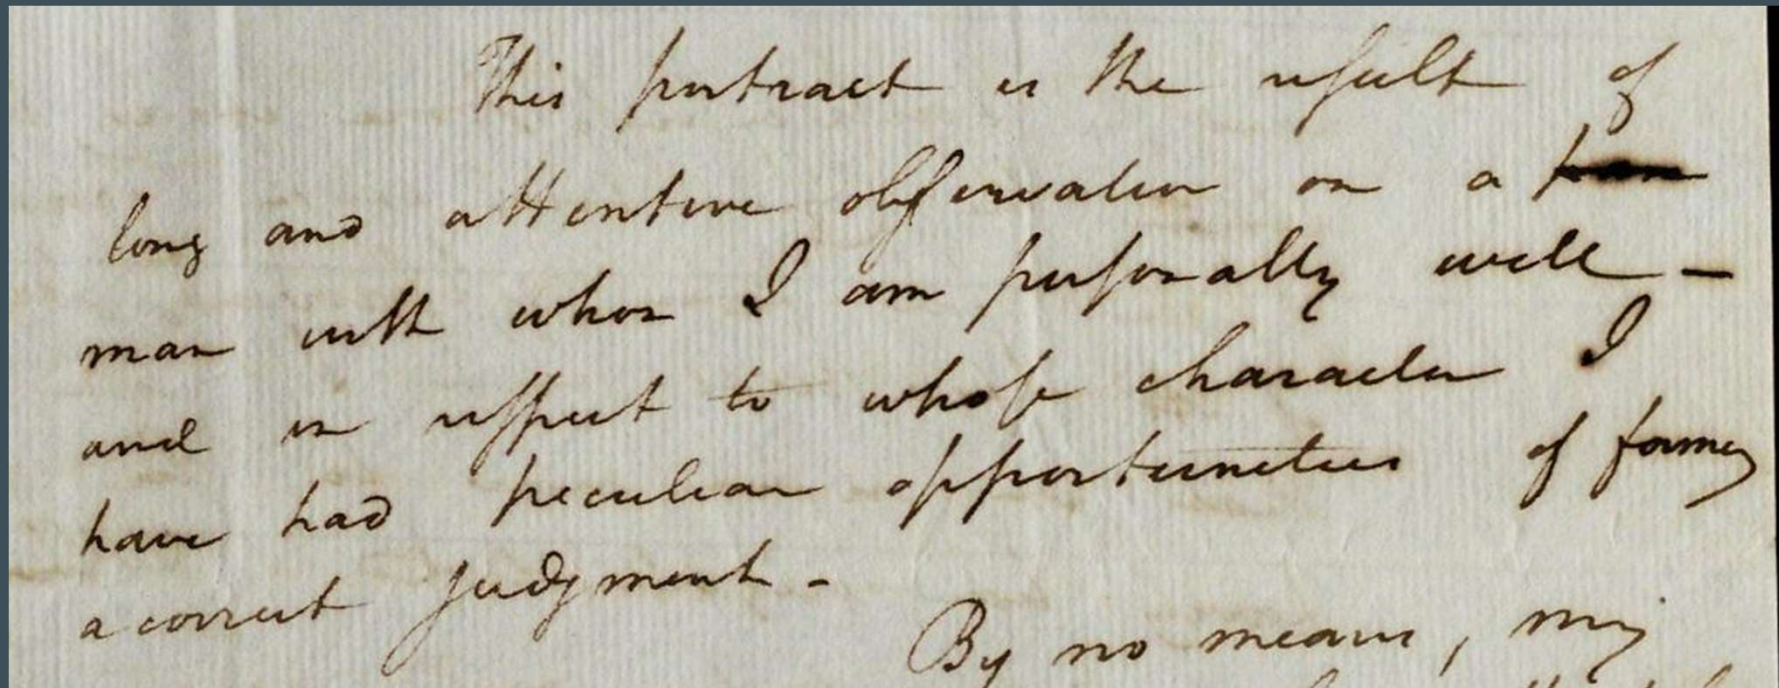 This portract is the result of
long and attentive observation on a
man with whom I am personally well –
and in respect to whose character I
have had peculiar opportunities of forming
a correct judgment –
By no means, my